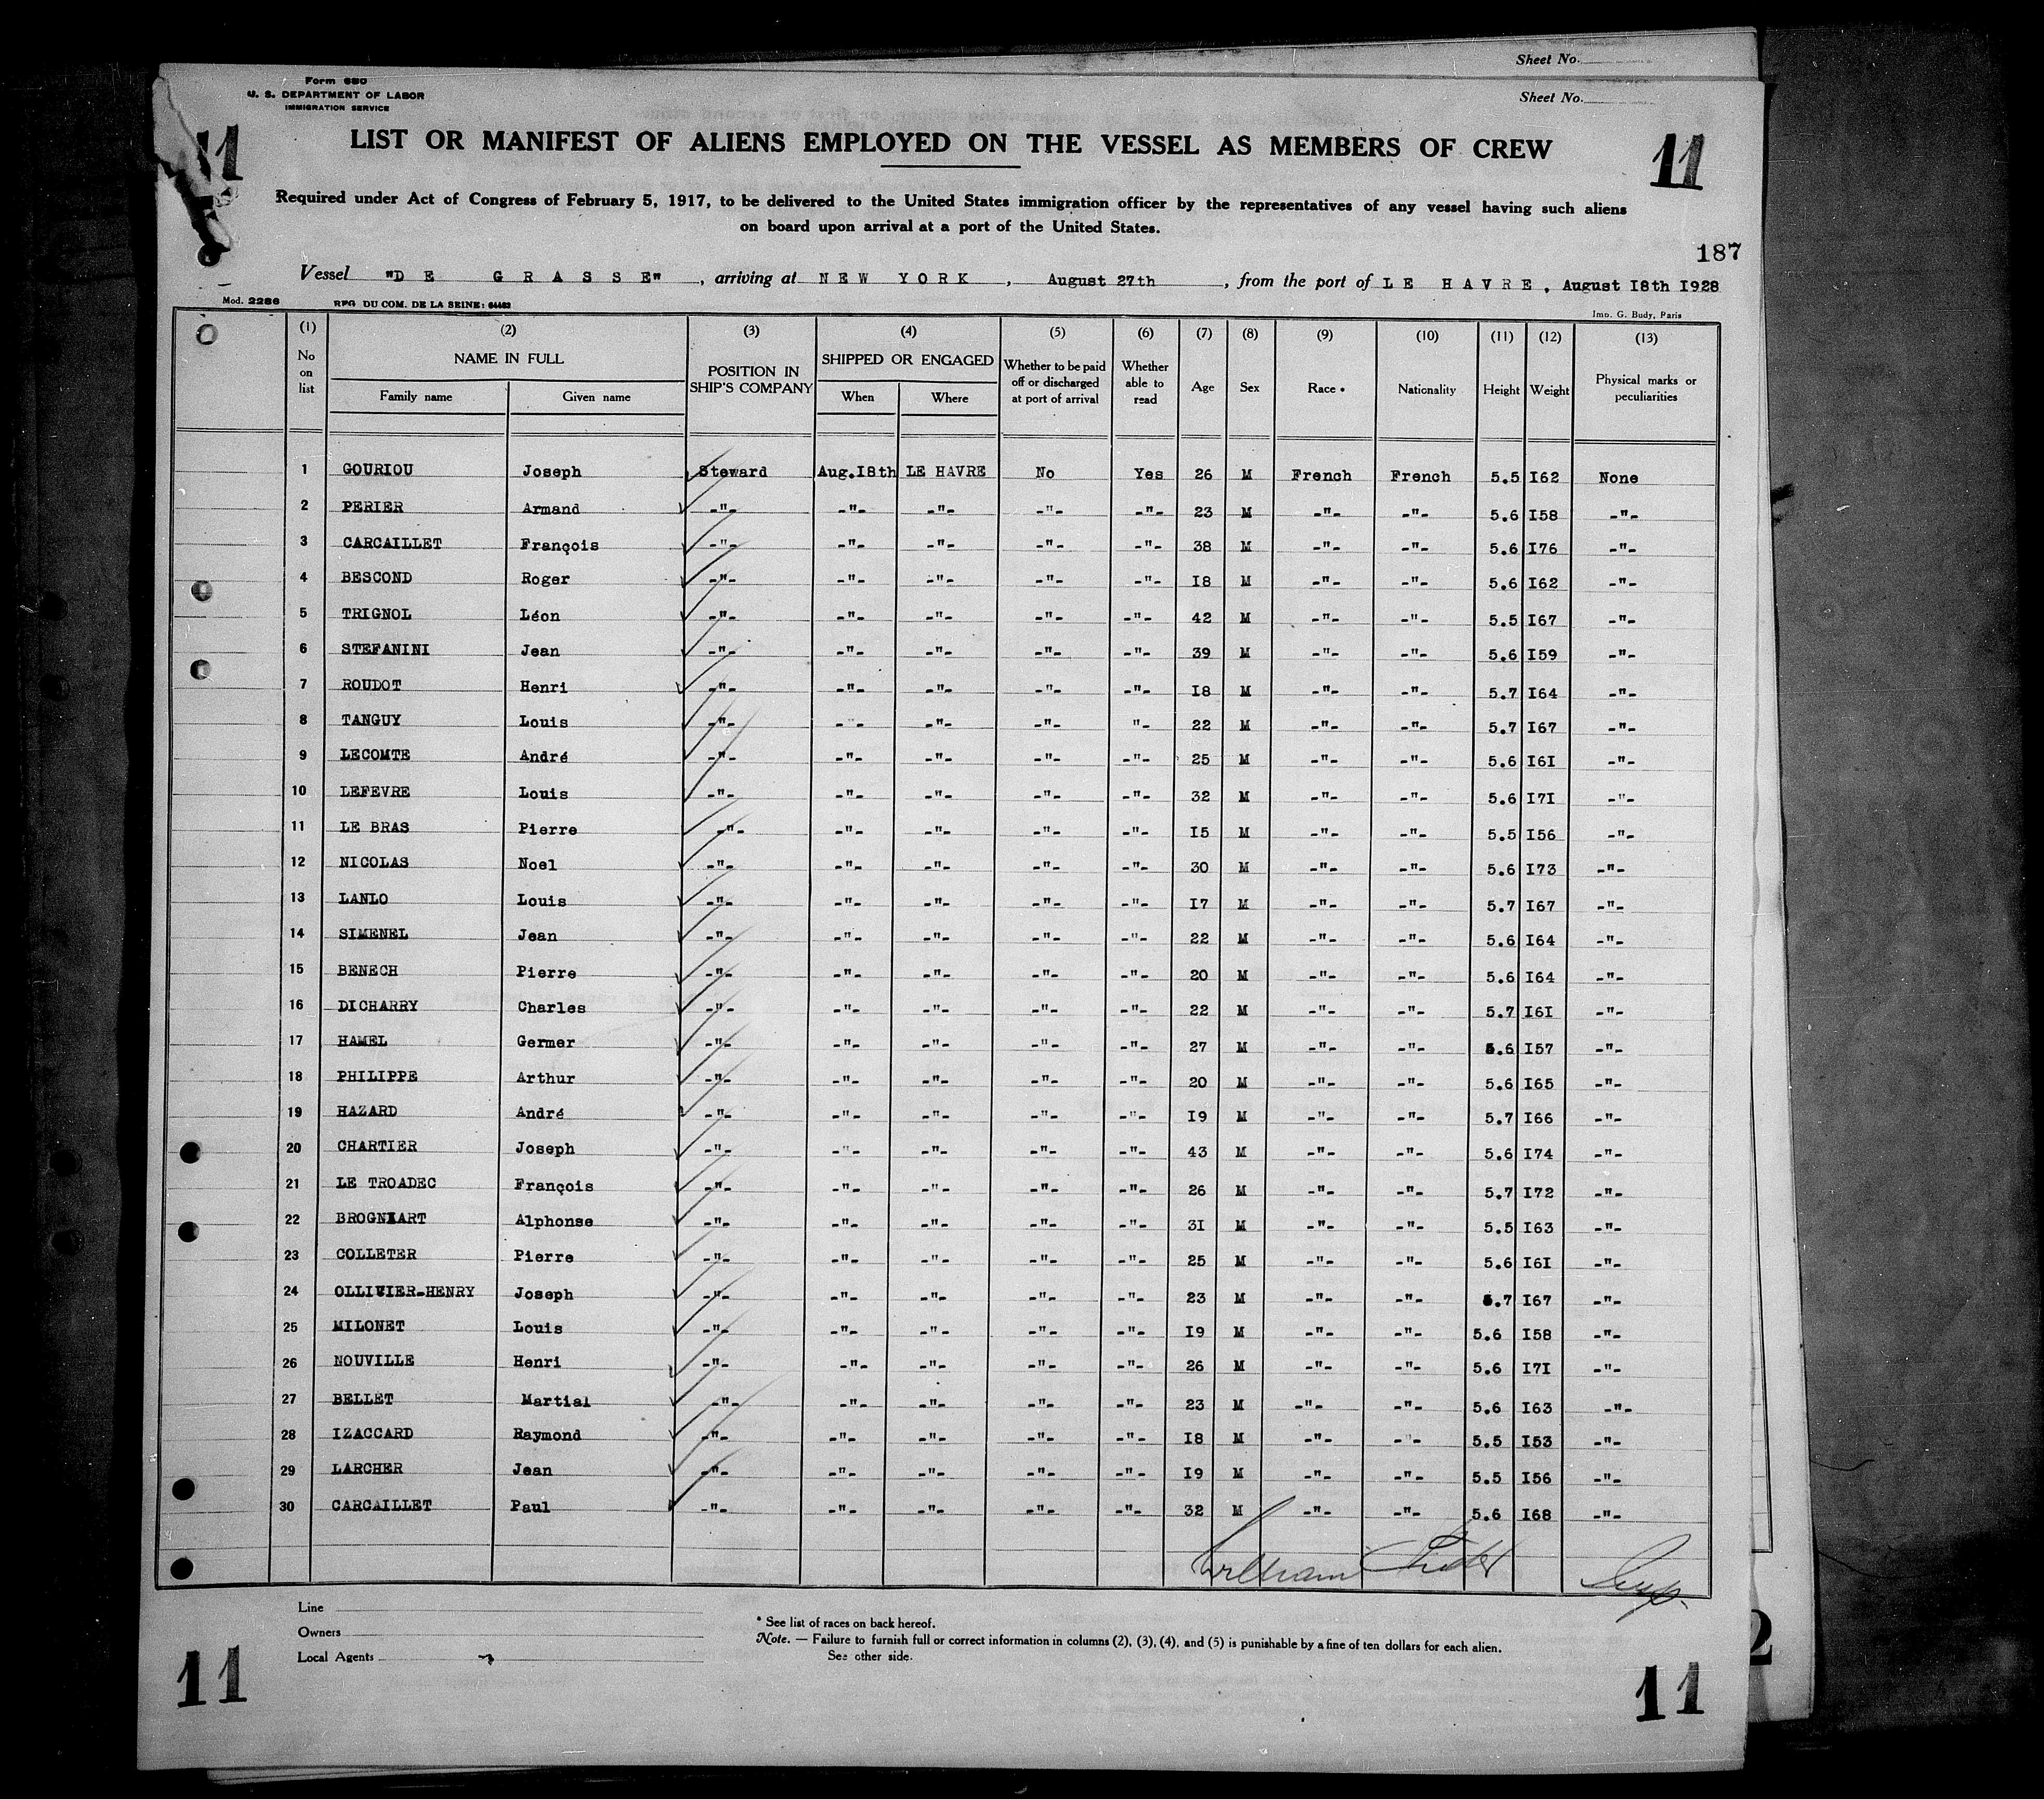 Sheet No.
Sheet No.
Form 680
U. S. DEPARTMENT OF LABOR
IMMIGRATION SERVICE
11 11
LIST OR MANIFEST OF ALIENS EMPLOYED ON THE VESSEL AS MEMBERS OF CREW
Required under Act of Congress of February 5, 1917, to be delivered to the United States immigration officer by the representatives of any vessel having such aliens
on board upon arrival at a port of the United States.
187
Vessel "DE GRASSE", arriving at NEW YORK, August 27th, from the port of LE HAVRE, August I8th I928
Mod. 2286 REG DU COM. DE LA SEINE: 64483 Imp. G. Budy, Paris
(1) (2) (3) (4) (5) (6) (7) (8) (9) (10) (11) (12) (13)
No on list NAME IN FULL POSITION IN SHIP'S COMPANY SHIPPED OR ENGAGED Whether to be paid off or discharged at port of arrival Whether able to read Age Sex Race * Nationality Height Weight Physical marks or peculiarities
Family name Given name When Where
1 GOURIOU Joseph Steward Aug.I8th LE HAVRE No Yes 26 M French French 5.5 I62 None
2 PERIER Armand -"- -"- -"- -"- -"- 23 M -"- -"- 5.6 I58 -"-
3 CARCAILLET François -"- -"- -"- -"- -"- 38 M -"- -"- 5.6 I76 -"-
4 BESCOND Roger -"- -"- -"- -"- -"- I8 M -"- -"- 5.6 I62 -"-
5 TRIGNOL Léon -"- -"- -"- -"- -"- 42 M -"- -"- 5.5 I67 -"-
6 STEFANINI Jean -"- -"- -"- -"- -"- 39 M -"- -"- 5.6 I59 -"-
7 ROUDOT Henri -"- -"- -"- -"- -"- I8 M -"- -"- 5.7 I64 -"-
8 TANGUY Louis -"- -"- -"- -"- "- 22 M -"- -"- 5.7 I67 -"-
9 LECOMTE André -"- -"- -"- -"- -"- 25 M -"- -"- 5.6 I6I -"-
10 LEFEVRE Louis -"- -"- -"- -"- -"- 32 M -"- -"- 5.6 I7I -"-
11 LE BRAS Pierre -"- -"- -"- -"- -"- I5 M -"- -"- 5.5 I56 -"-
12 NICOLAS Noel -"- -"- -"- -"- -"- 30 M -"- -"- 5.6 I73 -"-
13 LANLO Louis -"- -"- -"- -"- -"- I7 M -"- -"- 5.7 I67 -"-
14 SIMENEL Jean -"- -"- -"- -"- -"- 22 M -"- -"- 5.6 I64 -"-
15 BENECH Pierre -"- -"- -"- -"- -"- 20 M -"- -"- 5.6 I64 -"-
16 DICHARRY Charles -"- -"- -"- -"- -"- 22 M -"- -"- 5.7 I6I -"-
17 HAMEL Germer -"- -"- -"- -"- -"- 27 M -"- -"- 5.6 I57 -"-
18 PHILIPPE Arthur -"- -"- -"- -"- -"- 20 M -"- -"- 5.6 I65 -"-
19 HAZARD André -"- -"- -"- -"- -"- I9 M -"- -"- 5.7 I66 -"-
20 CHARTIER Joseph -"- -"- -"- -"- -"- 43 M -"- -"- 5.6 I74 -"-
21 LE TROADEC François -"- -"- -"- -"- -"- 26 M -"- -"- 5.7 I72 -"-
22 BROGNIART Alphonse -"- -"- -"- -"- -"- 3I M -"- -"- 5.5 I63 -"-
23 COLLETER Pierre -"- -"- -"- -"- -"- 25 M -"- -"- 5.6 I6I -"-
24 OLLIVIER-HENRY Joseph -"- -"- -"- -"- -"- 23 M -"- -"- 5.7 I67 -"-
25 MILONET Louis -"- -"- -"- -"- -"- I9 M -"- -"- 5.6 I58 -"-
26 NOUVILLE Henri -"- -"- -"- -"- -"- 26 M -"- -"- 5.6 I7I -"-
27 BELLET Martial -"- -"- -"- -"- -"- 23 M -"- -"- 5.6 I63 -"-
28 IZACCARD Raymond -"- -"- -"- -"- -"- I8 M -"- -"- 5.5 I53 -"-
29 LARCHER Jean -"- -"- -"- -"- -"- I9 M -"- -"- 5.5 I56 -"-
30 CARCAILLET Paul -"- -"- -"- -"- -"- 32 M -"- -"- 5.6 I68 -"-
William
Line
Owners
Local Agents
* See list of races on back hereof.
Note. — Failure to furnish full or correct information in columns (2), (3), (4), and (5) is punishable by a fine of ten dollars for each alien.
See other side.
11 11
2